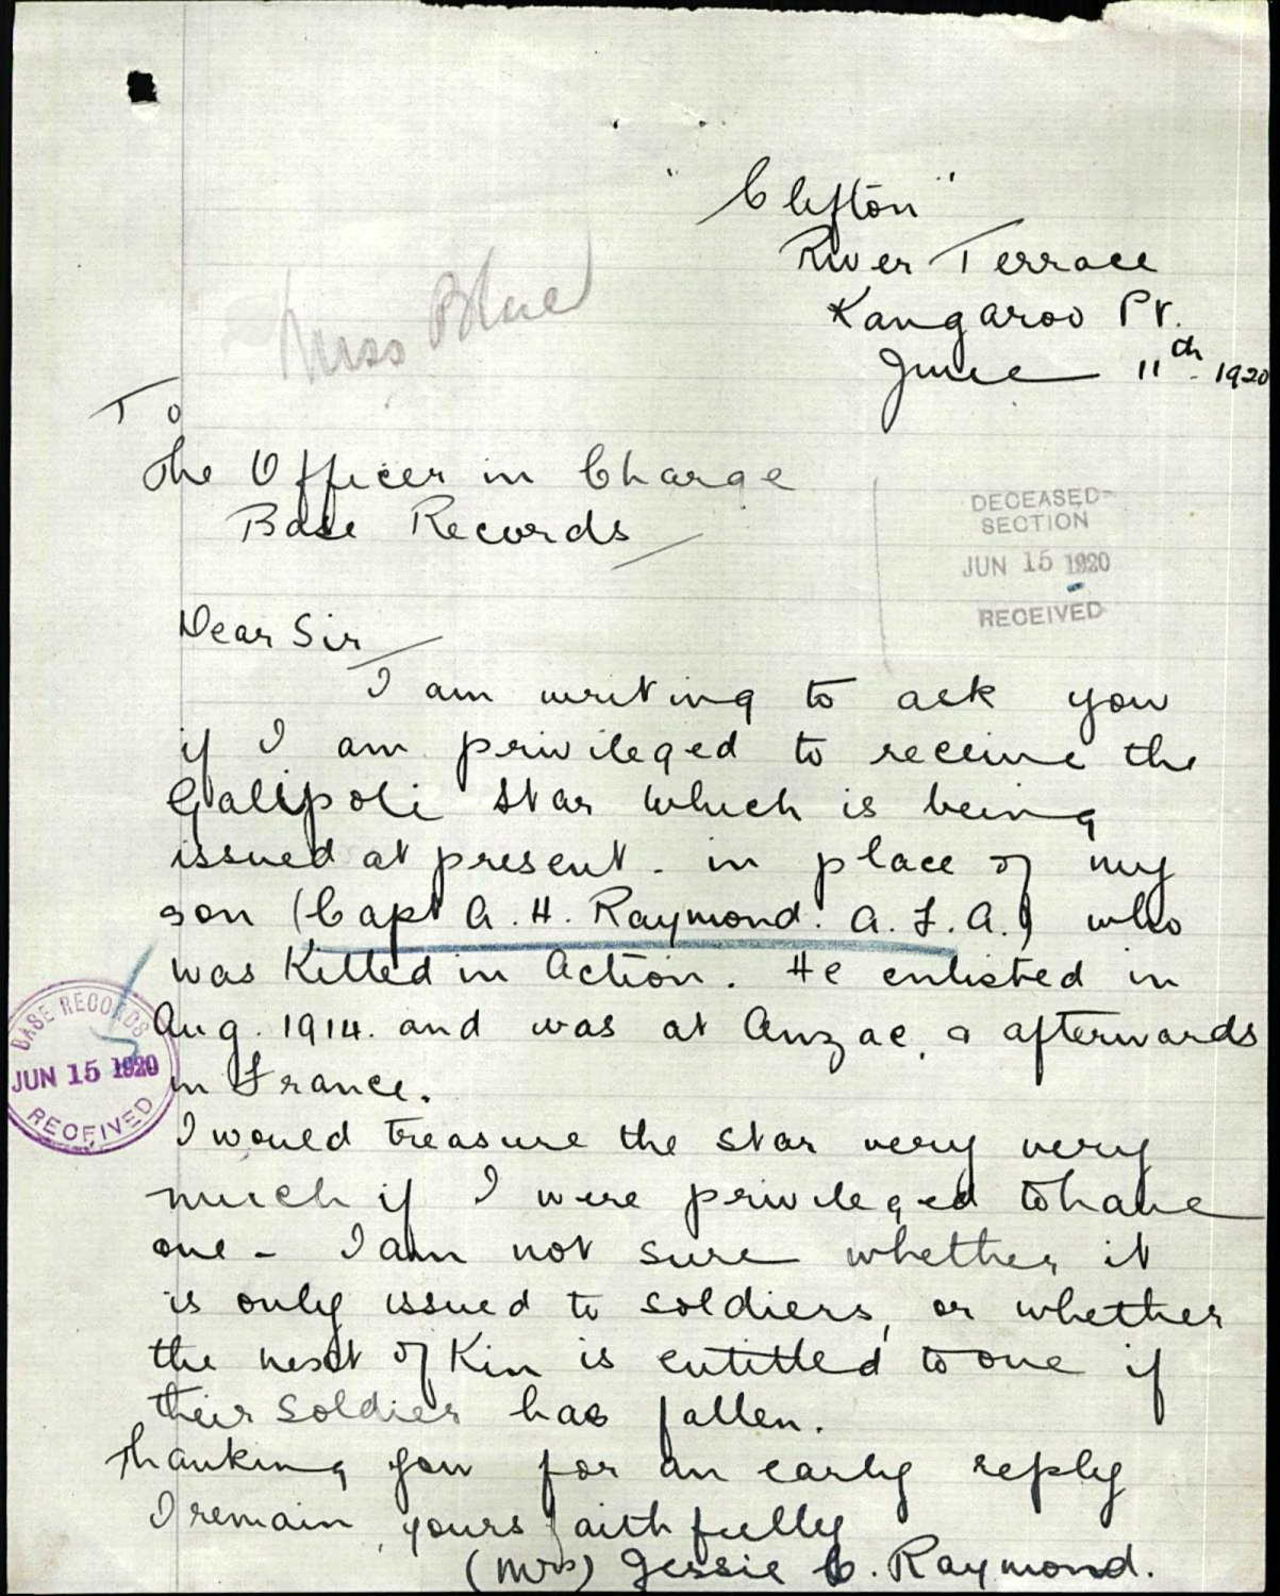 "Clifton"
River Terrace
Kangaroo Pt.
June 11th 1920
Miss Blue
To
The Officer in Charge
Base Records
DECEASED-
SECTION
JUN 15 1920
RECEIVED
Dear Sir
I am writing to ask you
if I am privileged to receive the
Gallipoli Star which is being
issued at present - in place of my
son (Capt A. H. Raymond. A.F.A.) who
was Killed in Action. He enlisted in
Aug. 1914. and was at Anzac, & afterwards
in France.
BASE RECORDS
JUN 15 1920
RECEIVED
I would treasure the star very very
much if I were privileged to have
one - I am not sure whether it
is only issued to soldiers, or whether
the next of Kin is entitled to one if
their soldier has fallen.
Thanking you for an early reply
I remain, yours faithfully
(Mrs) Jessie C. Raymond.